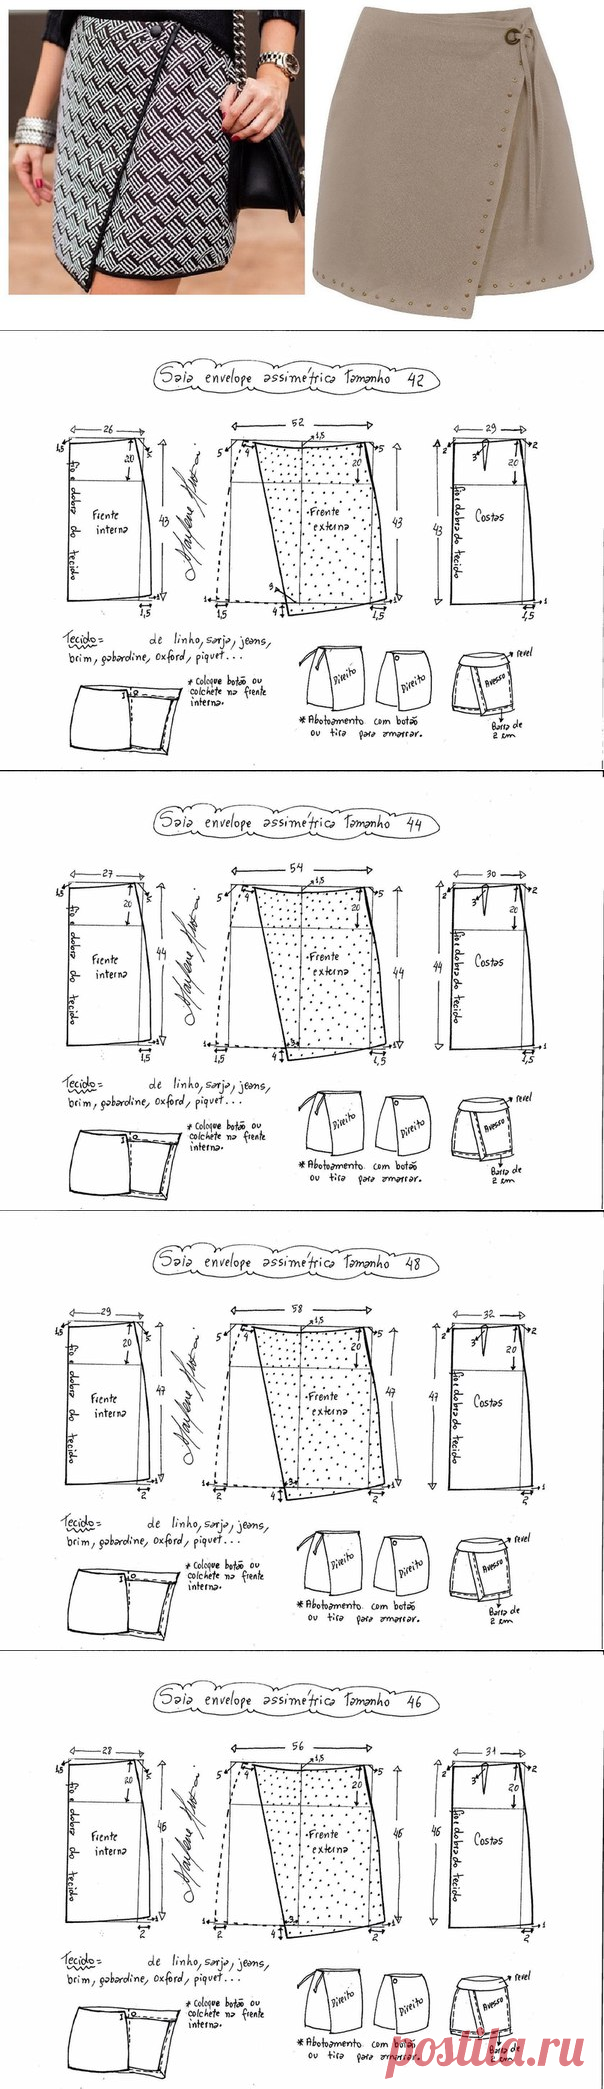 Saia envelope assimétrica Tamanho 42
26
52
29
1,5
1,5
5
4
5
2
3
2
20
20
20
43
43
43
fio e dobra do tecido
Frente interna
Marlene Mukai
Frente externa
fio e dobra do tecido
Costas
3
4
1
1
1
1
1,5
1,5
1,5
1,5
Tecido = de linho, sarja, jeans,
brim, gabardine, oxford, piquet...
* Coloque botão ou
colchete na frente
interna.
Direito
Direito
Avesso
revel
* Abotoamento com botão
ou tira para amarrar.
Barra de
2 cm
Saia envelope assimétrica Tamanho 44
27
54
30
1,5
1,5
5
4
5
2
3
2
20
20
20
44
44
44
fio e dobra do tecido
Frente interna
Marlene Mukai
Frente externa
fio e dobra do tecido
Costas
3
4
1
1
1
1
1,5
1,5
1,5
1,5
Tecido = de linho, sarja, jeans,
brim, gabardine, oxford, piquet...
* Coloque botão ou
colchete na frente
interna.
Direito
Direito
Avesso
revel
* Abotoamento com botão
ou tira para amarrar.
Barra de
2 cm
Saia envelope assimétrica Tamanho 48
29
58
32
1,5
1,5
5
4
5
2
3
2
20
20
20
47
47
47
fio e dobra do tecido
Frente interna
Marlene Mukai
Frente externa
fio e dobra do tecido
Costas
3
4
1
1
1
1
2
2
2
2
Tecido = de linho, sarja, jeans,
brim, gabardine, oxford, piquet...
* Coloque botão ou
colchete na frente
interna.
Direito
Direito
Avesso
revel
* Abotoamento com botão
ou tira para amarrar.
Barra de
2 cm
Saia envelope assimétrica Tamanho 46
28
56
31
1,5
1,5
5
4
5
2
3
2
20
20
20
46
46
46
fio e dobra do tecido
Frente interna
Marlene Mukai
Frente externa
fio e dobra do tecido
Costas
3
4
1
1
1
1
2
2
2
2
Tecido = de linho, sarja, jeans,
brim, gabardine, oxford, piquet...
* Coloque botão ou
colchete na frente
interna.
Direito
Direito
Avesso
revel
* Abotoamento com botão
ou tira para amarrar.
Barra de
2 cm
postila.ru